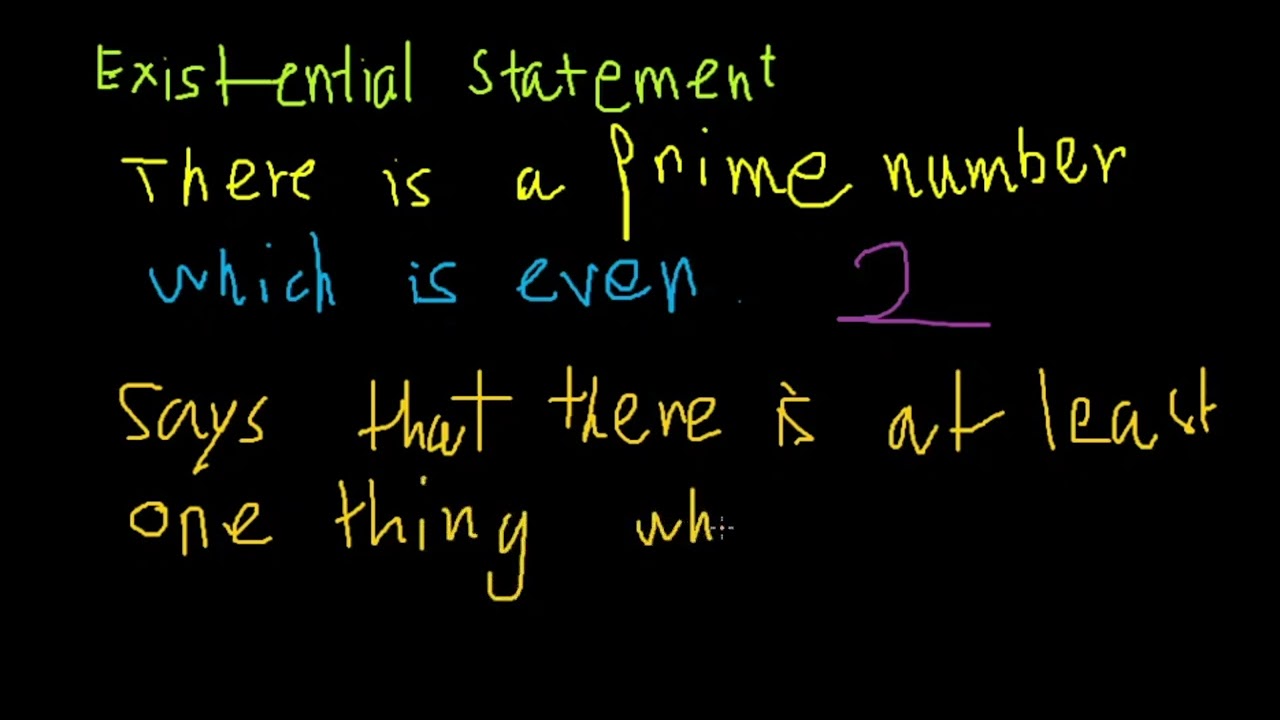 Existential Statement
There is a Prime number
which is even. 2
Says that there is at least
one thing wh